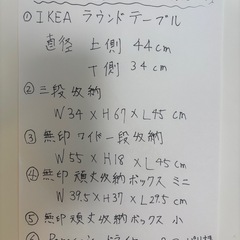 ① IKEA ラウンドテーブル
直径 上側 44cm
下側 34cm
② 三段収納
W34×H67×L45cm
③ 無印 ワイド一段収納
W55×H18×L45cm
④ 無印 頑丈収納ボックス ミニ
W39.5×H37×L29.5cm
⑤ 無印 頑丈収納ボックス 小